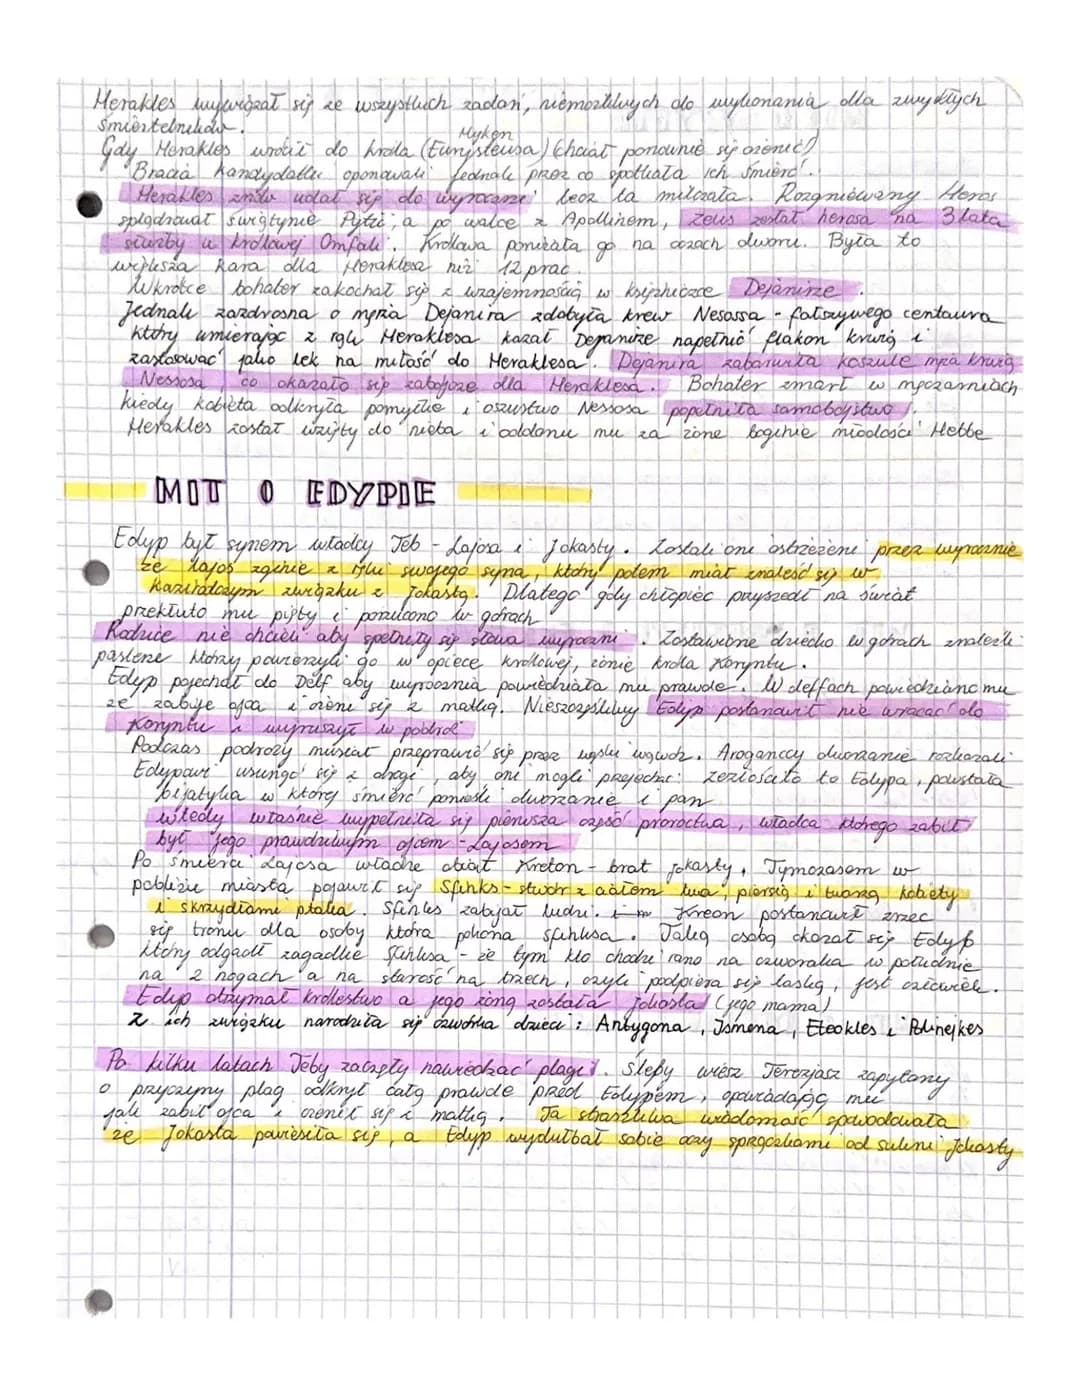 Herakles wywiązał się ze wszystkich zadań, niemożliwych do wykonania dla zwykłych
śmiertelników.
Myken
Gdy Herakles wrócił do króla (Eurysteusa) (chciał ponownie się ożenić)
Bracia kandydatki oponowali jednak przez co spotkała ich śmierć.
Herakles znów udał się do wyroczni lecz ta milczała. Rozgniewany Heros
splądrował świątynię Pytii, a po walce z Apollinem, Zeus zesłał herosa na 3 lata
służby u królowej Omfali. Królowa poniżała go na oczach dworu. Była to
większa kara dla Heraklesa niż 12 prac.
Wkrótce bohater zakochał się z wzajemnością w księżniczce Dejanirze.
Jednak zazdrosna o męża Dejanira zdobyła krew Nesassa - fałszywego centaura
który umierając z ręki Heraklesa kazał Dejanirze napełnić flakon krwią i
zastosować jako lek na miłość do Heraklesa. Dejanira zabarwiła koszule męża krwią
Nessosa, co okazało się zabójcze dla Heraklesa. Bohater zmarł w męczarniach
kiedy kobieta odkryła pomyłkę i oszustwo Nessosa popełniła samobójstwo.
Herakles został wzięty do nieba i oddano mu za żonę boginie młodości Hebbe
MIT O EDYPIE
Edyp był synem władcy Teb - Lajosa i Jokasty. Zostali oni ostrzeżeni przez wyrocznie
że Lajos zginie z ręki swojego syna, który potem miał znaleść się w
kazirodczym związku z Jokastą. Dlatego gdy chłopiec przyszedł na świat
przekłuto mu pięty i porzucono w górach
Rodzice nie chcieli aby spełniły się słowa wyroczni. Zostawione dziecko w górach znaleźli
pasterze którzy powierzyli go w opiece królowej, żonie króla Koryntu.
Edyp pojechał do Delf aby wyrocznia powiedziała mu prawde. W delfach powiedziano mu
że zabije ojca i ożeni się z matką. Nieszczęśliwy Edyp postanowił nie wracać do
Koryntu i wyruszył w podróż
Podczas podróży musiał przeprawić się przez wąski wąwóz. Aroganccy dworzanie rozkazali
Edypowi usunąć się z drogi, aby oni mogli przejechać. Zezłościło to Edypa, powstała
bijatyka w której śmierć ponieśli dworzanie i pan
wtedy właśnie wypełniła się pierwsza część proroctwa, władca którego zabił
był jego prawdziwym ojcem - Lajosem
Po śmierci Lajosa władzę objął Kreton - brat Jokasty. Tymczasem w
pobliżu miasta pojawił się Sfinks - stwór z ciałem lwa, piersią i twarzą kobiety
i skrzydłami ptaka. Sfinks zabijał ludzi. Kreon postanowił zrzec
się tronu dla osoby która pokona sfinksa. Taką osobą okazał się Edyp
który odgadł zagadkie Sfinksa - że tym kto chodzi rano na czworaka w południe
na 2 nogach a na starość na trzech, czyli podpiera się laską, jest człowiek.
Edyp otrzymał królestwo a jego żoną została Jokasta (jego mama)
Z ich związku narodziła się czwórka dzieci: Antygona, Ismena, Eteokles i Polinejkes
Po kilku latach Teby zaczęły nawiedzać plagi. Ślepy wiesz Terezjasz zapytany
o przyczyny plag odkrył całą prawde przed Edypem, opowiadając mu
jak zabił ojca i ożenił się z matką. Ta straszliwa wiadomość spowodowała
że Jokasta powiesiła się, a Edyp wydłubał sobie oczy sprzączkami od sukni Jokasty